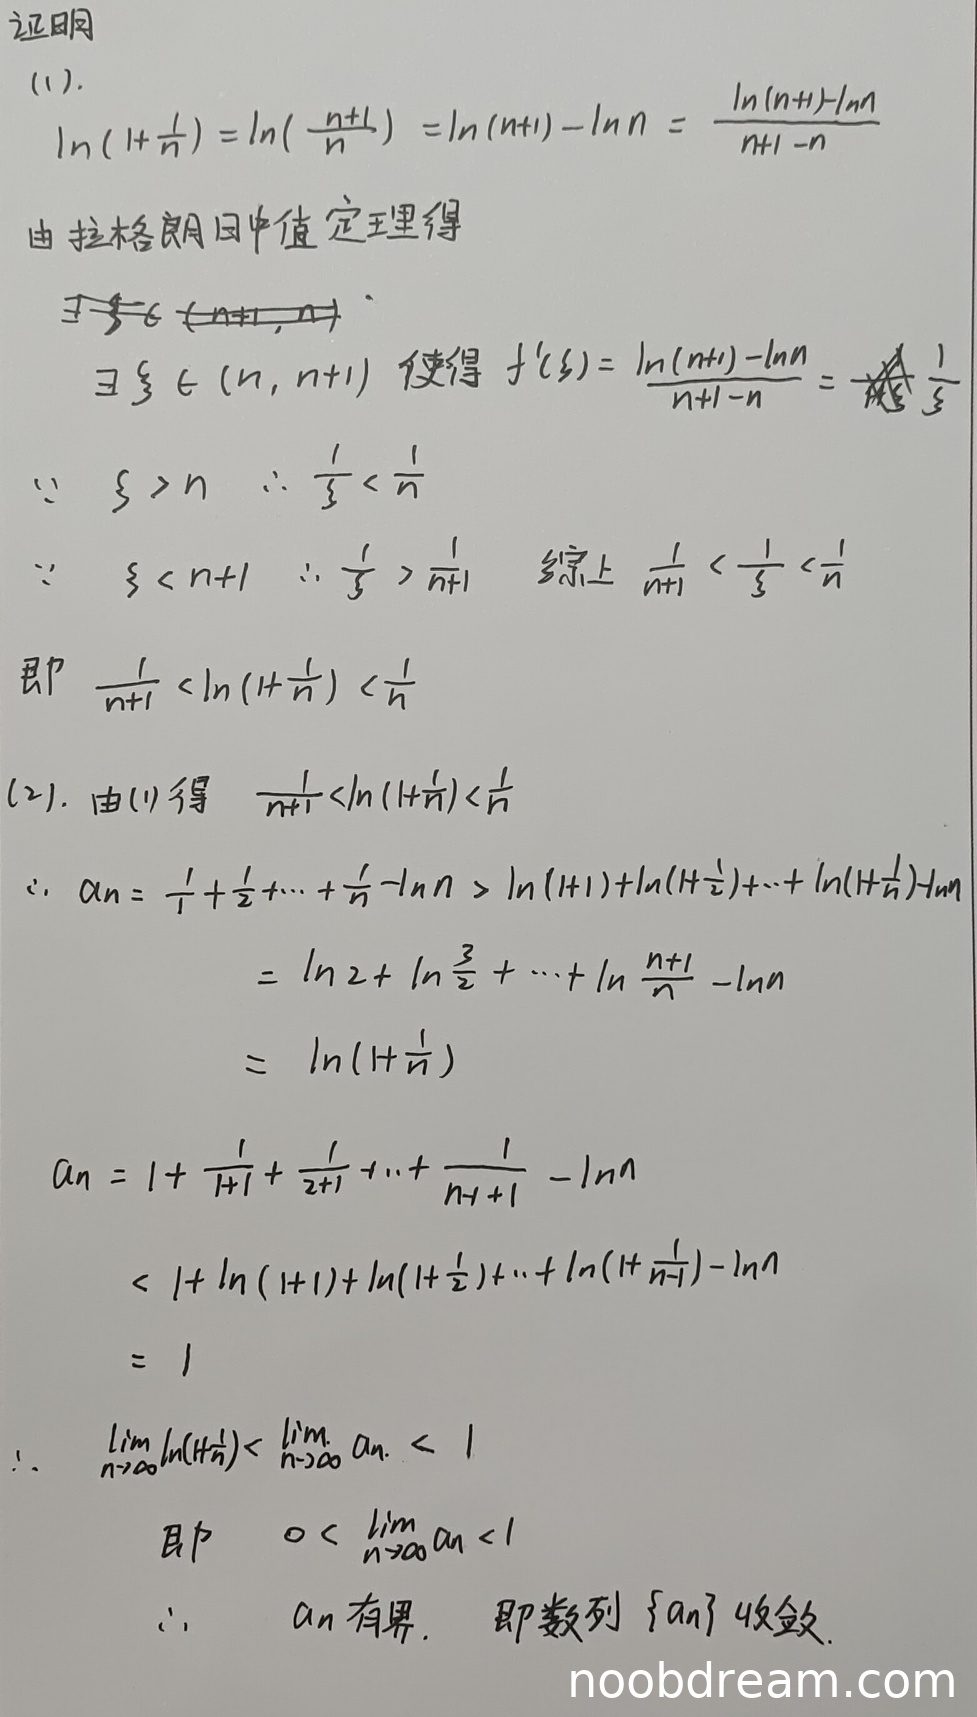 证明
(1).
ln(1+1/n) = ln((n+1)/n) = ln(n+1) - ln n = (ln(n+1)-ln n)/(n+1-n)
由拉格朗日中值定理得
∃ξ∈(n+1, n)
∃ξ∈(n, n+1) 使得 f'(ξ) = (ln(n+1)-ln n)/(n+1-n) = 1/ξ
∵ ξ > n ∴ 1/ξ < 1/n
∵ ξ < n+1 ∴ 1/ξ > 1/(n+1) 综上 1/(n+1) < 1/ξ < 1/n
即 1/(n+1) < ln(1+1/n) < 1/n
(2). 由(1)得 1/(n+1) < ln(1+1/n) < 1/n
∴ an = 1/1 + 1/2 + ··· + 1/n - ln n > ln(1+1) + ln(1+1/2) + ··· + ln(1+1/n) - ln n
= ln 2 + ln 3/2 + ··· + ln (n+1)/n - ln n
= ln(1+1/n)
an = 1 + 1/(1+1) + 1/(2+1) + ··· + 1/(n-1+1) - ln n
< 1 + ln(1+1) + ln(1+1/2) + ··· + ln(1+1/(n-1)) - ln n
= 1
∴ lim n→∞ ln(1+1/n) < lim n→∞ an. < 1
即 0 < lim n→∞ an < 1
∴ an 有界. 即数列{an}收敛.
noobdream.com